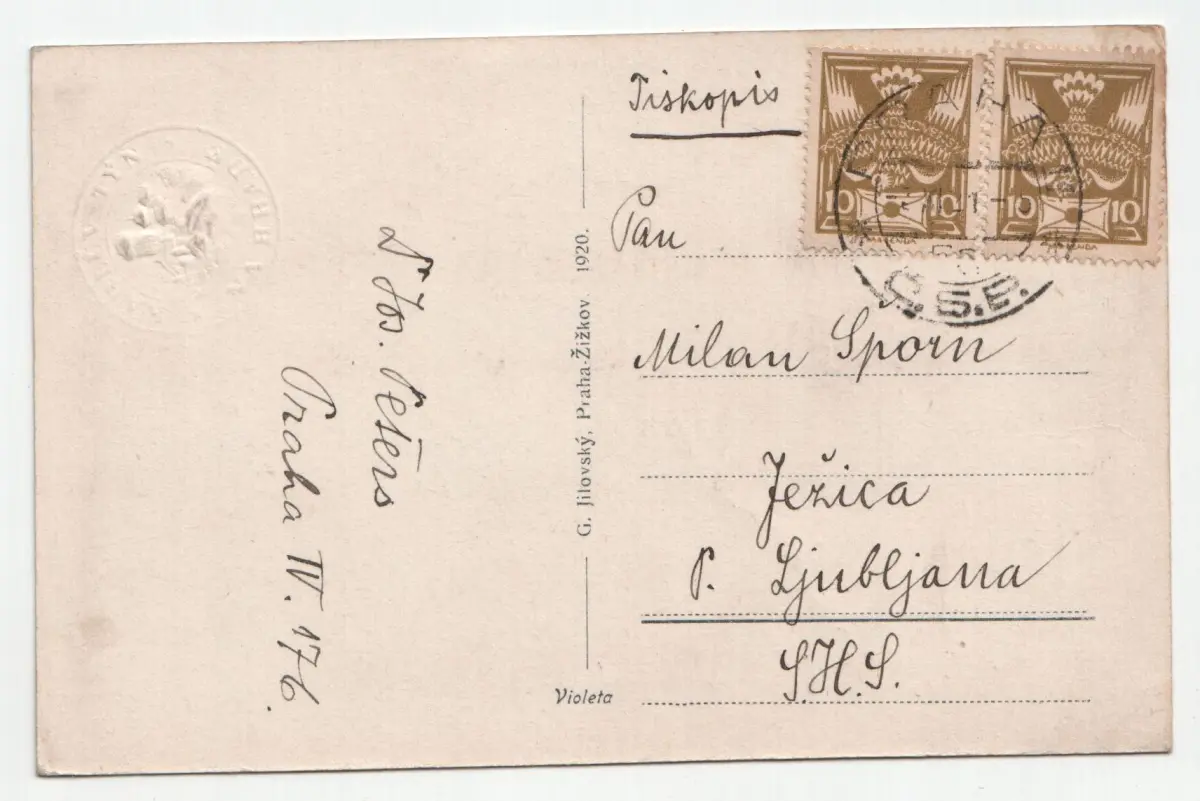 Tiskopis
Pan
Milan Sporn
Ježica
p. Ljubljana
S.H.S.
Dr Jos. Peters
Praha IV. 176.
G. Jilovský, Praha-Žižkov 1920.
Violeta
10 10
10 10
Č.S.P.